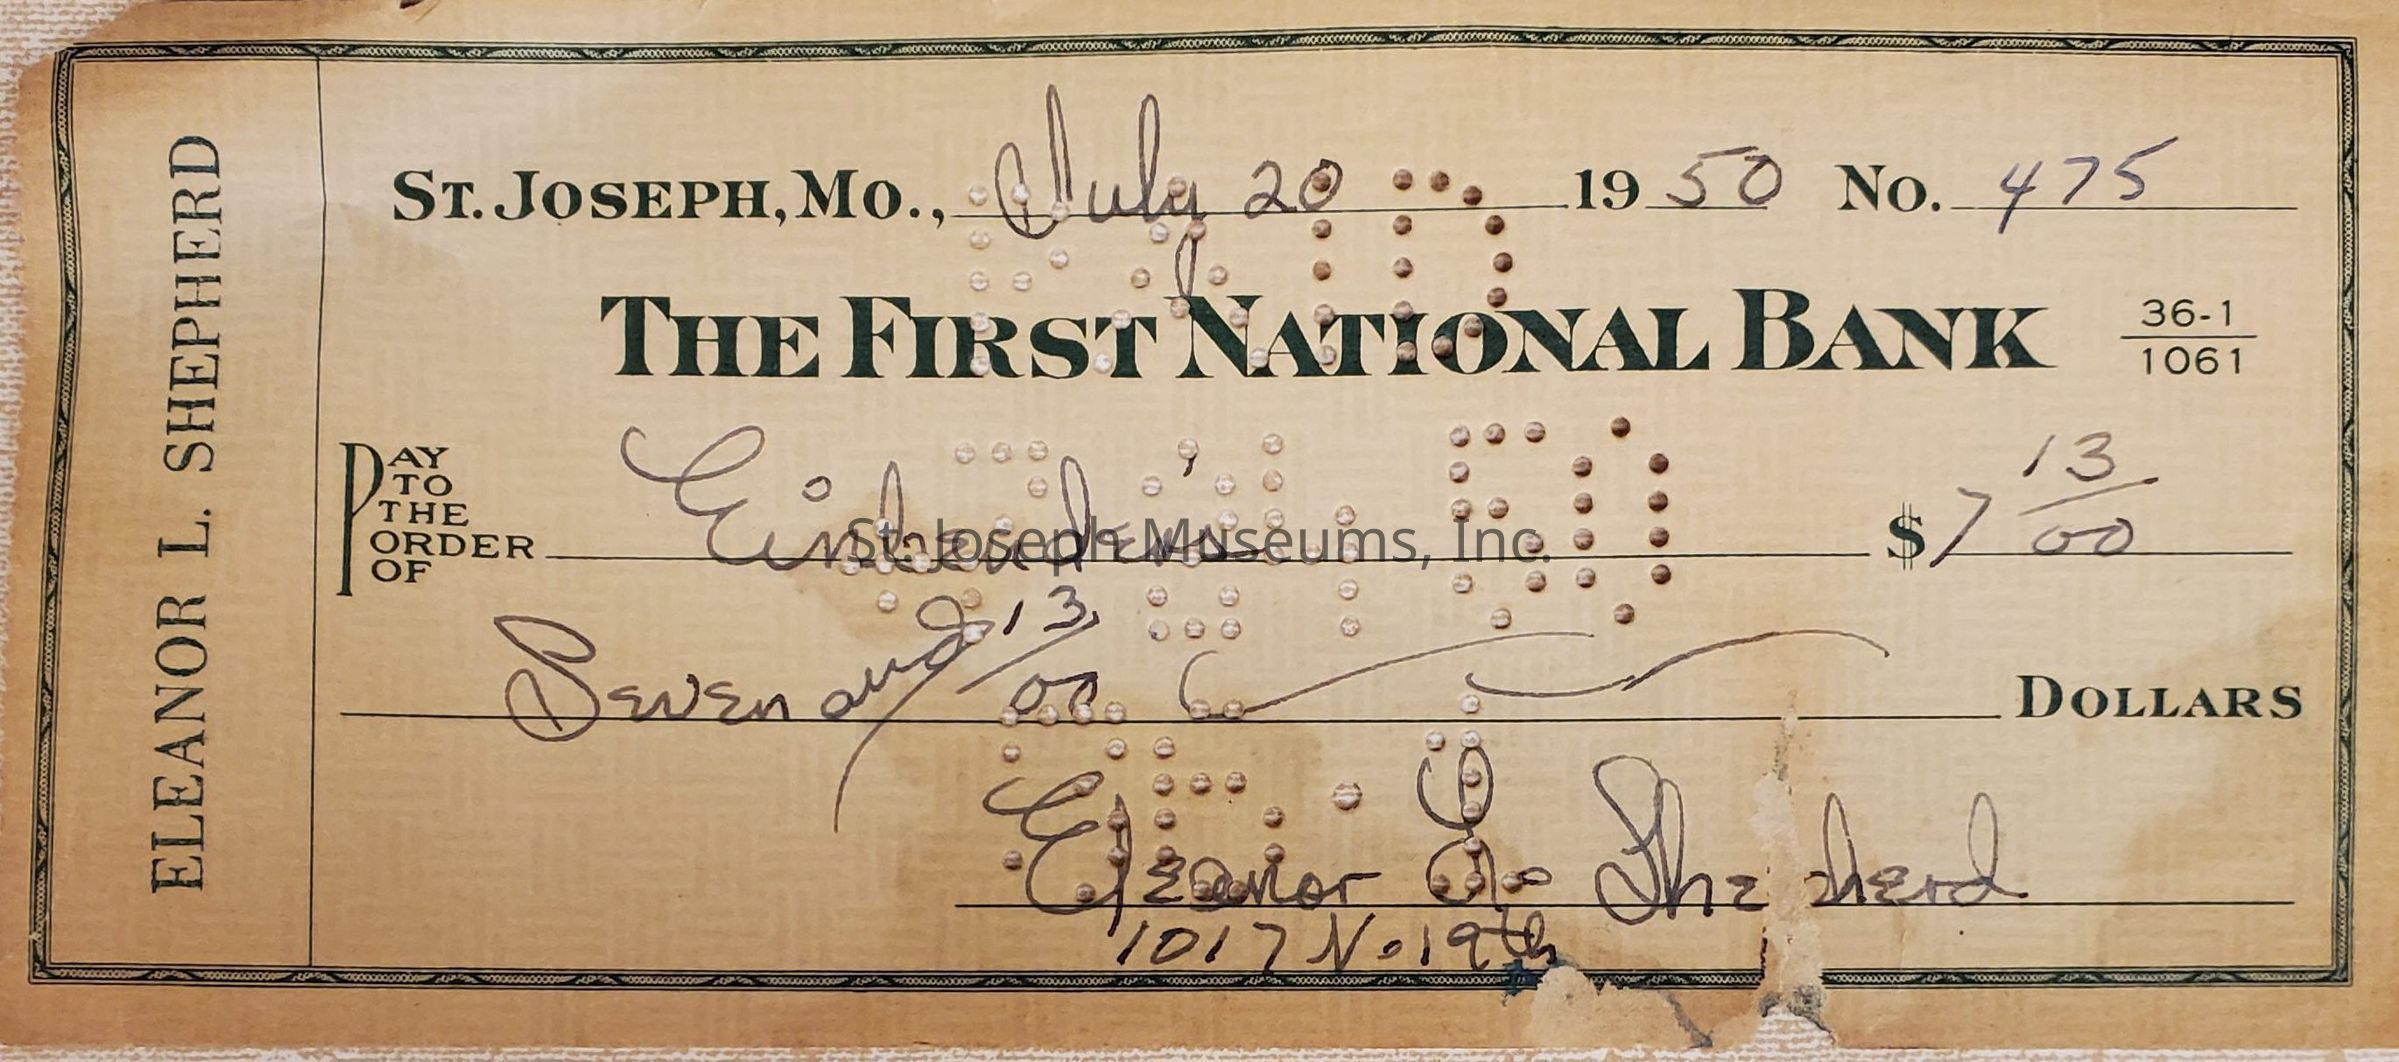 ELEANOR L. SHEPHERD
ST. JOSEPH, MO., July 20 1950 No. 475
THE FIRST NATIONAL BANK 36-1/1061
PAY TO THE ORDER OF Einbender's $7 13/00
Seven and 13/00 DOLLARS
Eleanor L. Shepherd
1017 No. 19th
St. Joseph Museums, Inc.